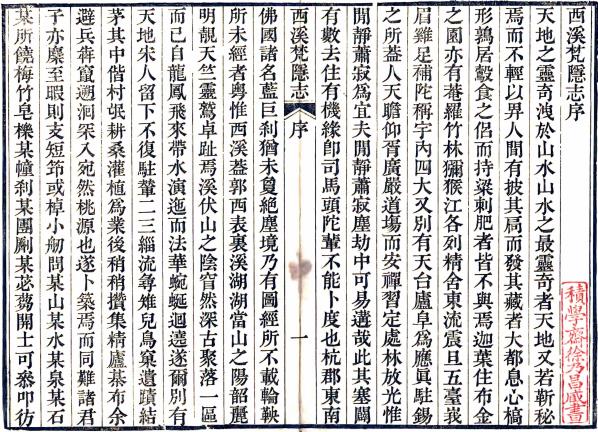 西溪梵隱志序
天地之靈奇洩於山水山水之最靈奇者天地又若靳秘
焉而不輕以畀人間有披其扃而發其藏者大都息心槁
形鶉居鷇食之侶而持粱刺肥者皆不與焉迦葉住布金
之園亦有菴羅竹林獼猴江各列精舍東流震旦五臺峩
眉雞足補陀稱宇內四大又別有天台廬阜爲應眞駐錫
之所蓋人天瞻仰胥廣嚴道塲而安禪習定處林放光惟
閒靜蕭寂爲宜夫閒靜蕭寂塵劫中可易遘哉此其塞闢
有數去住有機緣卽司馬頭陀輩不能卜度也杭郡東南
西溪梵隱志 序 一
佛國諸名藍巨刹猶未敻絶塵境乃有圖經所不載輪鞅
所未經者粤惟西溪蓋郭西表裏溪湖湖當山之陽韶麗
明靚天竺靈鷲卓趾焉溪伏山之陰窅然深古聚落一區
而已自龍鳳飛來帶水演迤而法華蜿蜒迴遶遂爾別有
天地宋人留下不復駐輦二三緇流尋雉兒鳥窠遺蹟結
茅其中偕村氓耕桑灌植爲業後稍稍攢集精廬棊布余
避兵犇竄遡洄罙入宛然桃源也遂卜築焉而同難諸君
子亦麇至暇則支短筇或棹小舠問某山某水某泉某石
某所饒梅竹皂櫟某幢刹某團瓢某苾蒭開士可叅叩彷
積學齋徐乃昌藏書